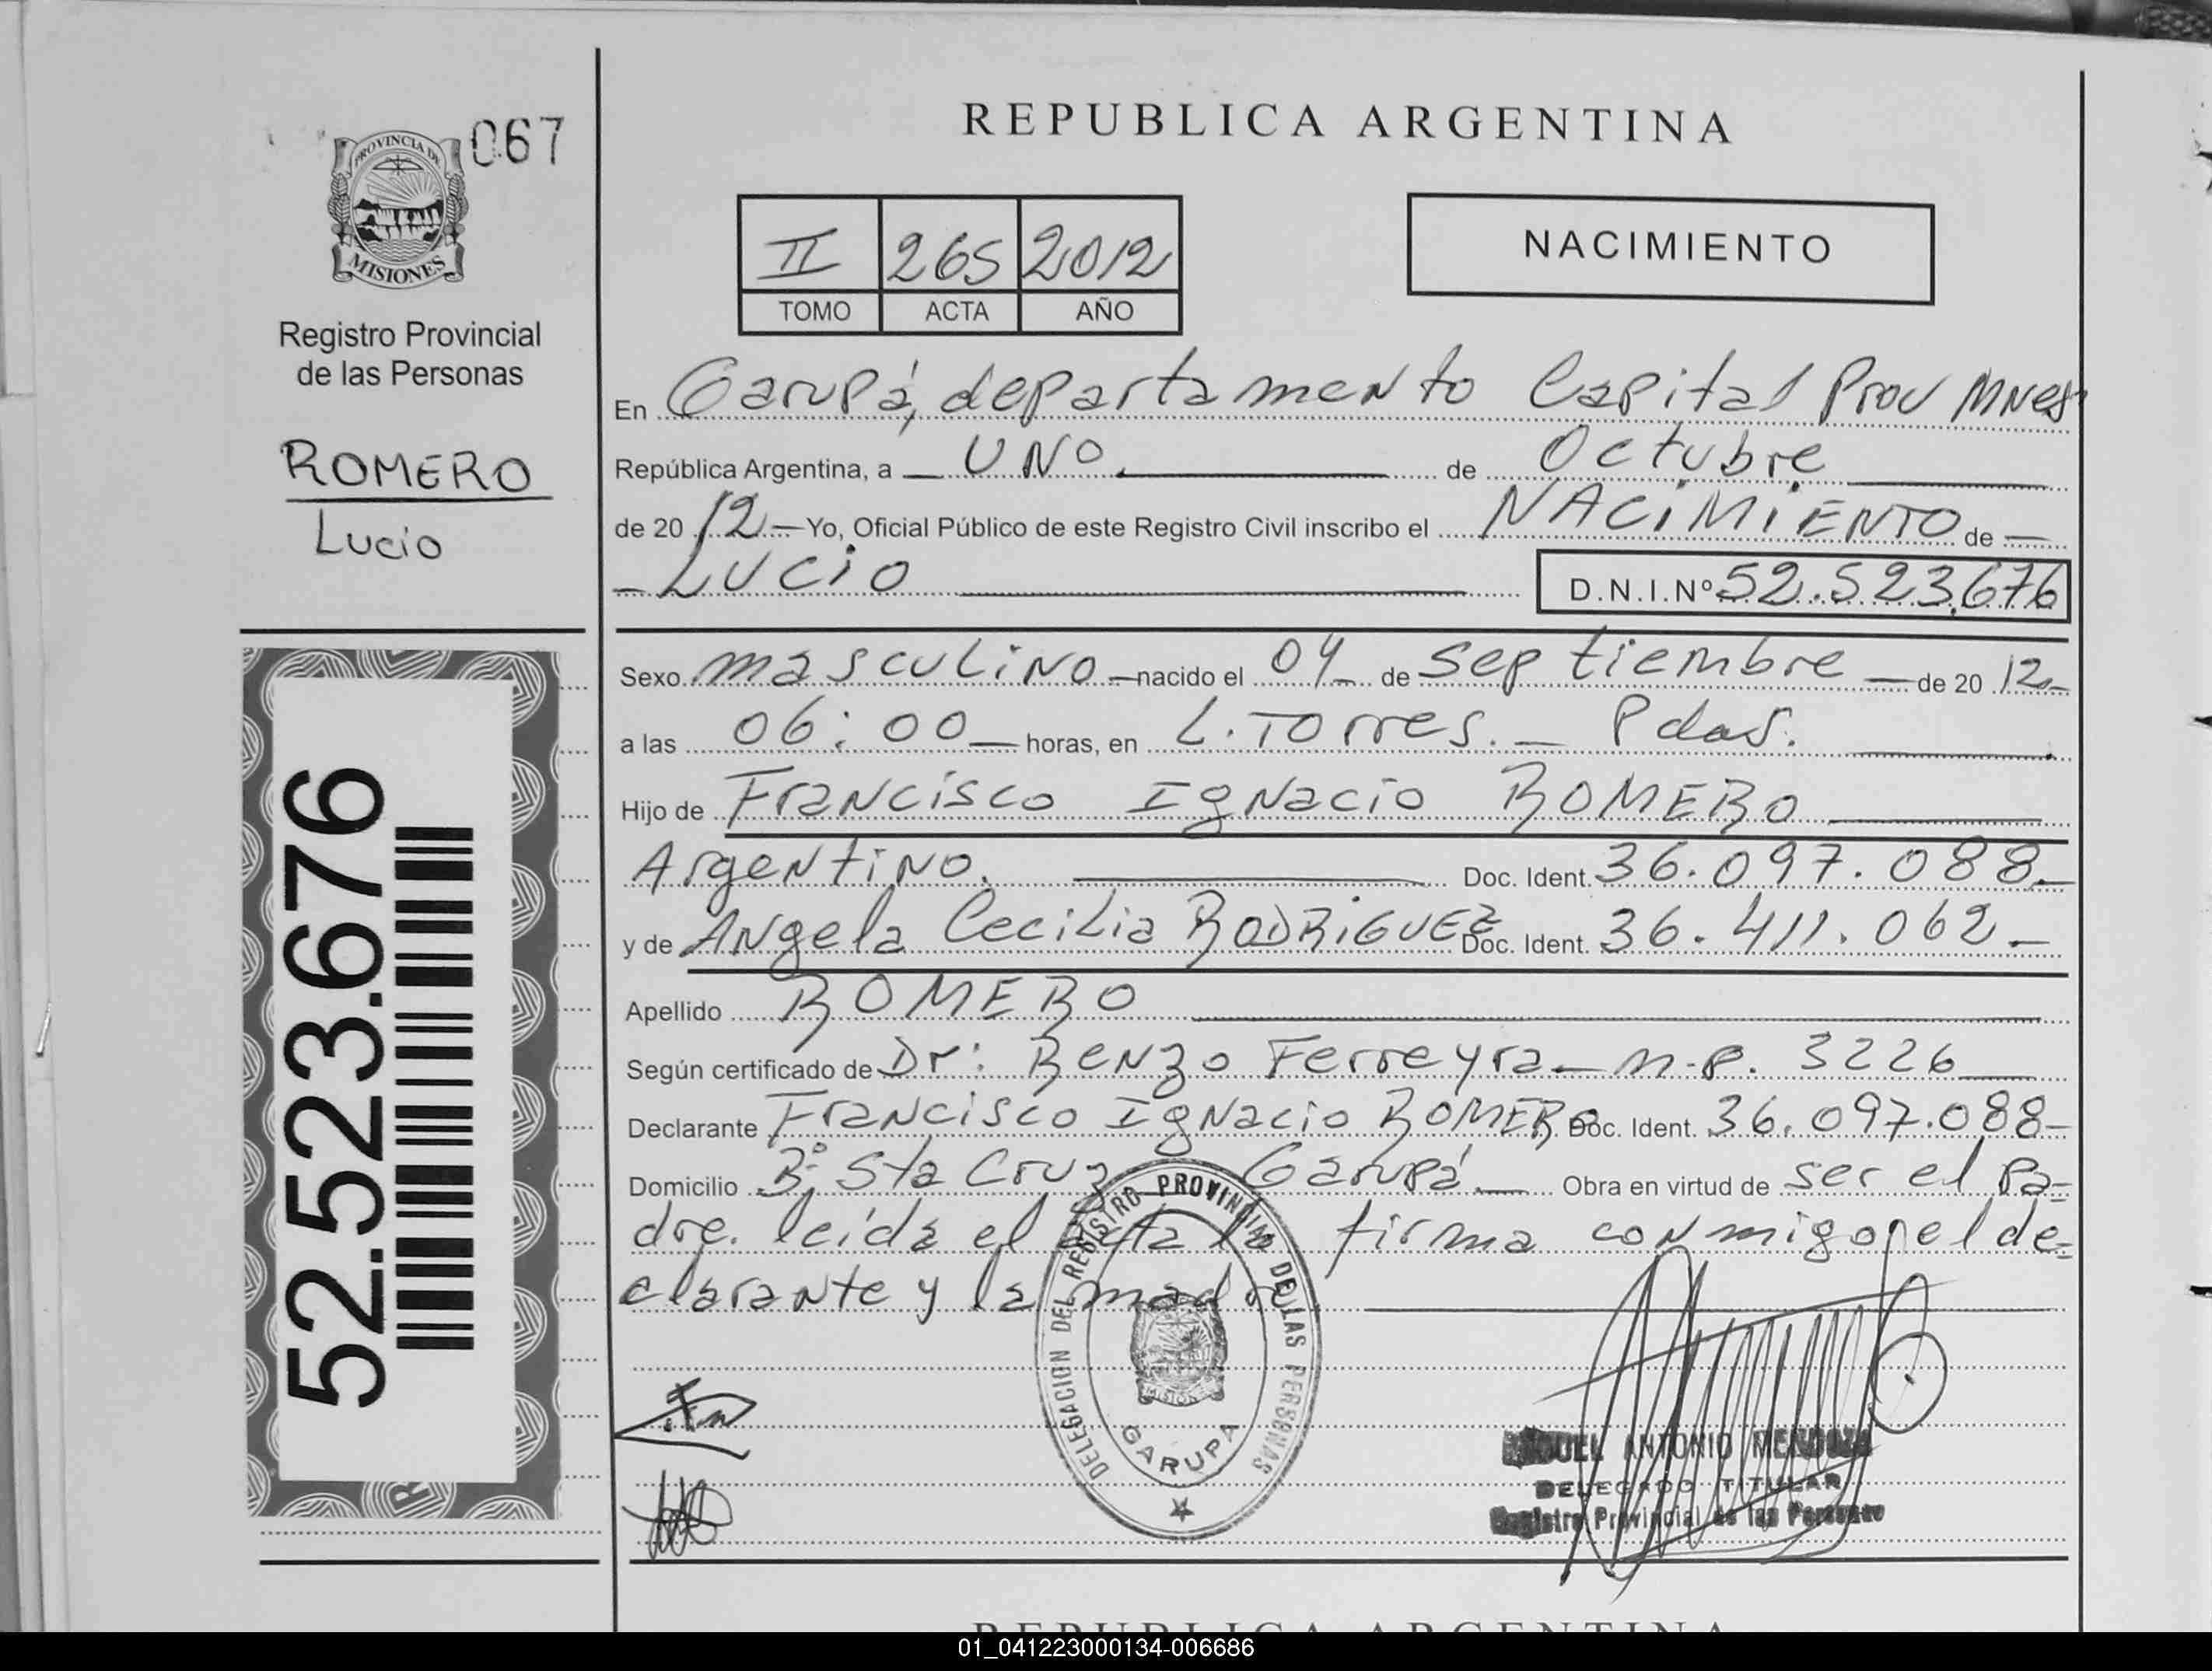 067
PROVINCIA DE
MISIONES
Registro Provincial
de las Personas
ROMERO
Lucio
52.523.676
REPUBLICA ARGENTINA
II 265 2012
TOMO ACTA AÑO
NACIMIENTO
En Garupá, departamento Capital Prov Mnes
República Argentina, a UNO. de Octubre
de 20 12 Yo, Oficial Público de este Registro Civil inscribo el NACIMIENTO de
LUCIO D.N.I.Nº 52.523.676
Sexo masculino nacido el 04 de septiembre de 20 12
a las 06:00 horas, en L. Torres. Pdas.
Hijo de Francisco Ignacio ROMERO
Argentino. Doc. Ident. 36.097.088
y de Angela Cecilia RODRIGUEZ Doc. Ident. 36.411.062
Apellido ROMERO
Según certificado de Dr: Renzo Ferreyra m.p. 3226
Declarante Francisco Ignacio ROMERO Doc. Ident. 36.097.088
Domicilio Bº Sta Cruz Garupá Obra en virtud de ser el Pa=
dre. leída el acta la firma conmigo el de=
clarante y la madre
DELEGACION DEL REGISTRO PROVINCIAL DE LAS PERSONAS
MISIONES
GARUPA
ANTONIO MENDOZA
DELEGADO TITULAR
Registro Provincial de las Personas
REPUBLICA ARGENTINA
01_041223000134-006686